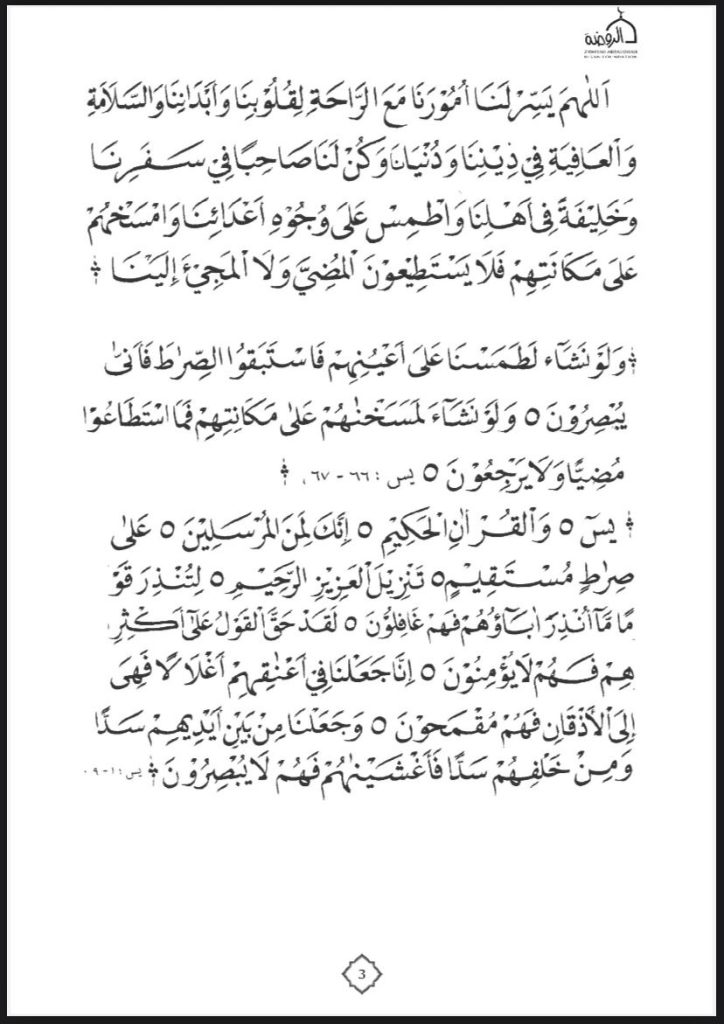 الروضة
اَللّٰهُمَّ يَسِّرْ لَنَا أُمُوْرَنَا مَعَ الرَّاحَةِ لِقُلُوْبِنَا وَأَبْدَانِنَا وَالسَّلَامَةِ
وَالْعَافِيَةِ فِيْ دِيْنِنَا وَدُنْيَانَا وَكُنْ لَنَا صَاحِبًا فِيْ سَفَرِنَا
وَخَلِيْفَةً فِى اَهْلِنَا وَاطْمِسْ عَلَى وُجُوْهِ أَعْدَائِنَا وَامْسَخْهُمْ
عَلَى مَكَانَتِهِمْ فَلَا يَسْتَطِيْعُوْنَ الْمُضِيَّ وَلَا الْمَجِيْءَ إِلَيْنَا
وَلَوْ نَشَآء لَطَمَسْنَا عَلَى أَعْيُنِهِمْ فَاسْتَبَقُوا الصِّرٰطَ فَاَنّٰى
يُبْصِرُوْنَ ٥ وَلَوْ نَشَآءُ لَمَسَخْنٰهُمْ عَلٰى مَكَانَتِهِمْ فَمَا اسْتَطَاعُوْا
مُضِيًّا وَلَا يَرْجِعُوْنَ ٥ يس : ٦٦ - ٦٧
يٰسٓ ٥ وَالْقُرْاٰنِ الْحَكِيْمِ ٥ إِنَّكَ لَمِنَ الْمُرْسَلِيْنَ ٥ عَلٰى
صِرٰطٍ مُسْتَقِيْمٍ ٥ تَنْزِيْلَ الْعَزِيْزِ الرَّحِيْمِ ٥ لِتُنْذِرَ قَوْ
مًا مَّآ أُنْذِرَ اٰبَآؤُهُمْ فَهُمْ غَافِلُوْنَ ٥ لَقَدْ حَقَّ الْقَوْلُ عَلٰٓى اَكْثَرِ
هِمْ فَهُمْ لَا يُؤْمِنُوْنَ ٥ إِنَّا جَعَلْنَا فِيْ أَعْنٰقِهِمْ أَغْلَالًا فَهِىَ
إِلَى الْأَذْقَانِ فَهُمْ مُقْمَحُوْنَ ٥ وَجَعَلْنَا مِنْ بَيْنِ أَيْدِيْهِمْ سَدًّا
وَمِنْ خَلْفِهِمْ سَدًّا فَأَغْشَيْنٰهُمْ فَهُمْ لَا يُبْصِرُوْنَ يس : ١-٩
3